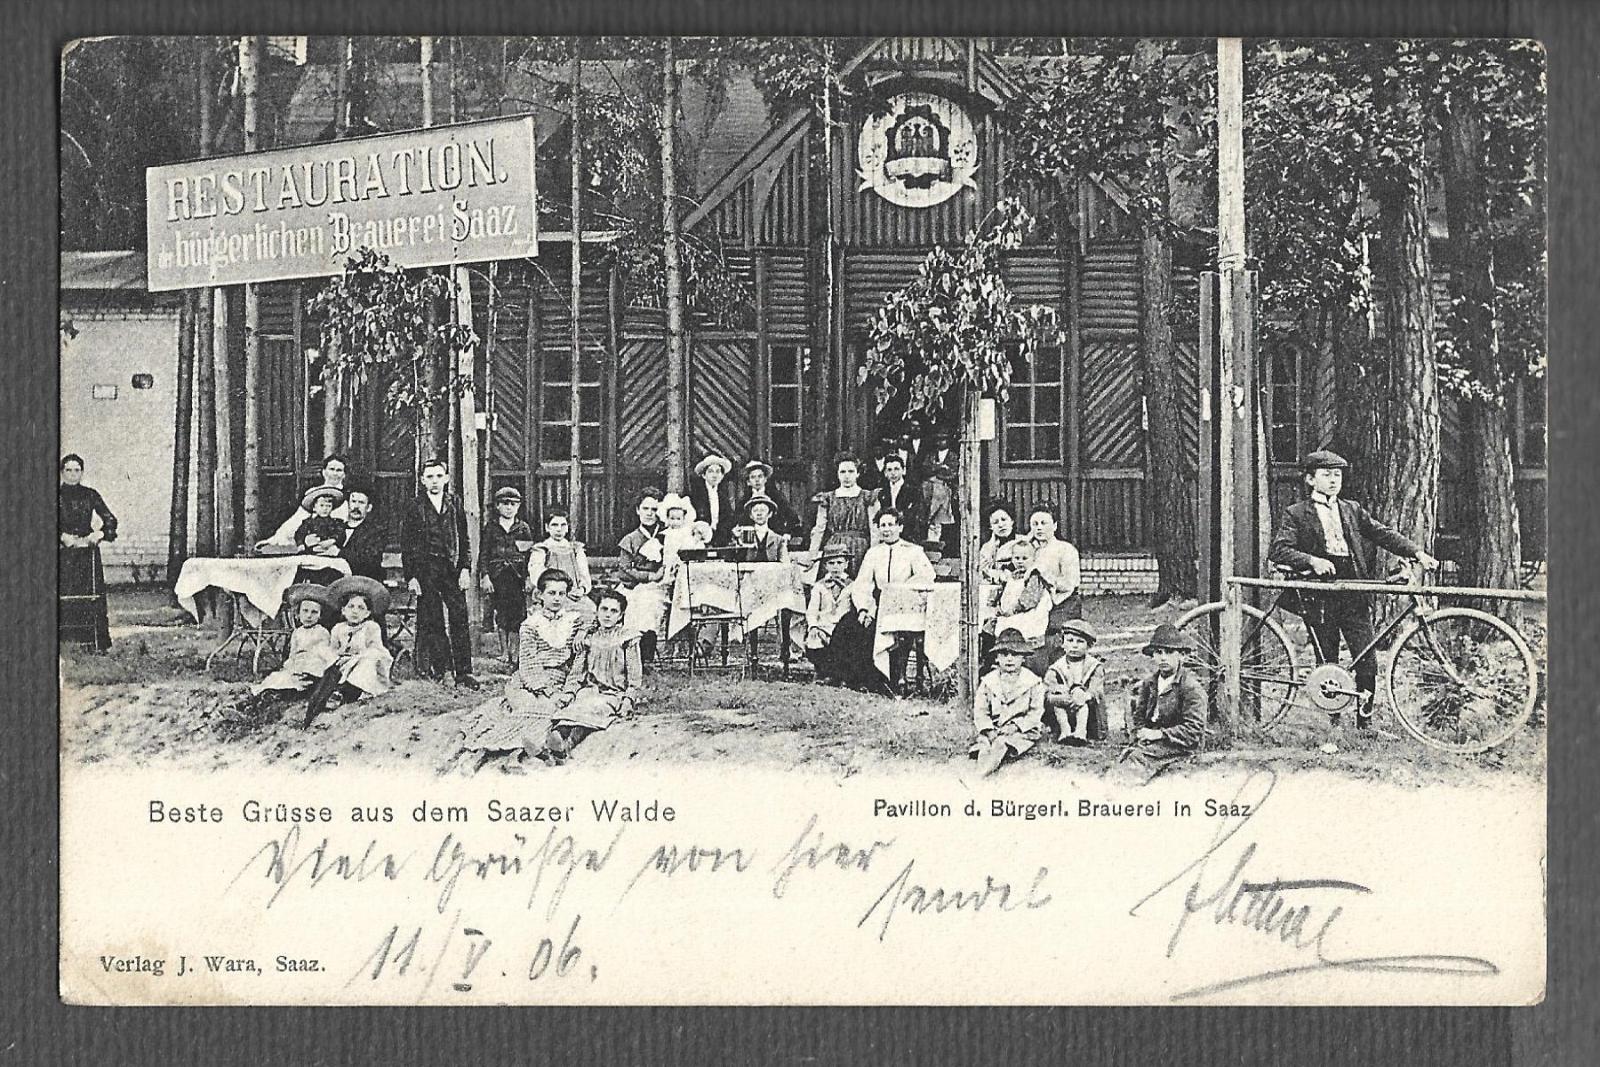 RESTAURATION.
der bürgerlichen Brauerei Saaz
Beste Grüsse aus dem Saazer Walde
Pavillon d. Bürgerl. Brauerei in Saaz
Viele Grüße von hier
sendet
11./V. 06.
Verlag J. Wara, Saaz.